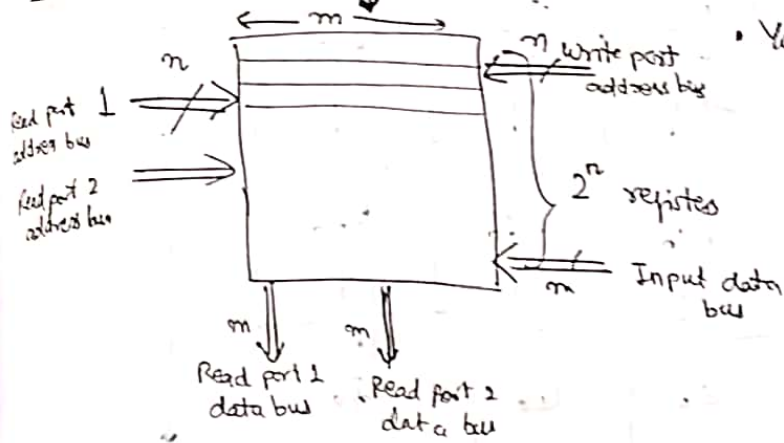 m
n
Read port 1
addres bus
Read port 2
address bus
n write port
address bus
2^n registers
m Input data
bus
m
m
Read port 1
data bus
Read port 2
data bus